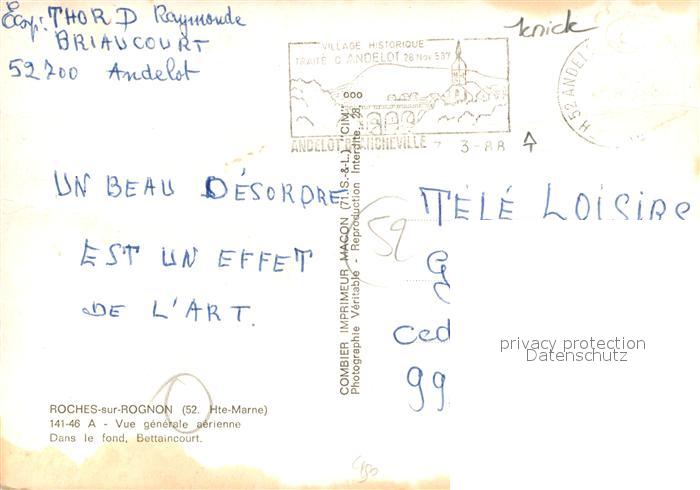 Exp: THOR D Raymonde
BRIAUCOURT
52700 Andelot
knick
VILLAGE HISTORIQUE
TRAITÉ D'ANDELOT 28 Nov 587
ANDELOT BLANCHEVILLE
3-88
H 52 ANDEL
UN BEAU DÉSORDRE
EST UN EFFET
DE L'ART.
COMBIER IMPRIMEUR MACON (71.S.-&-L.) "CIM"
Photographie Véritable - Reproduction Interdite
52
TÉLÉ LOISIRS
G
Ced
99
privacy protection
Datenschutz
ROCHES-sur-ROGNON (52. Hte-Marne)
141-46 A - Vue générale aérienne
Dans le fond, Bettaincourt.